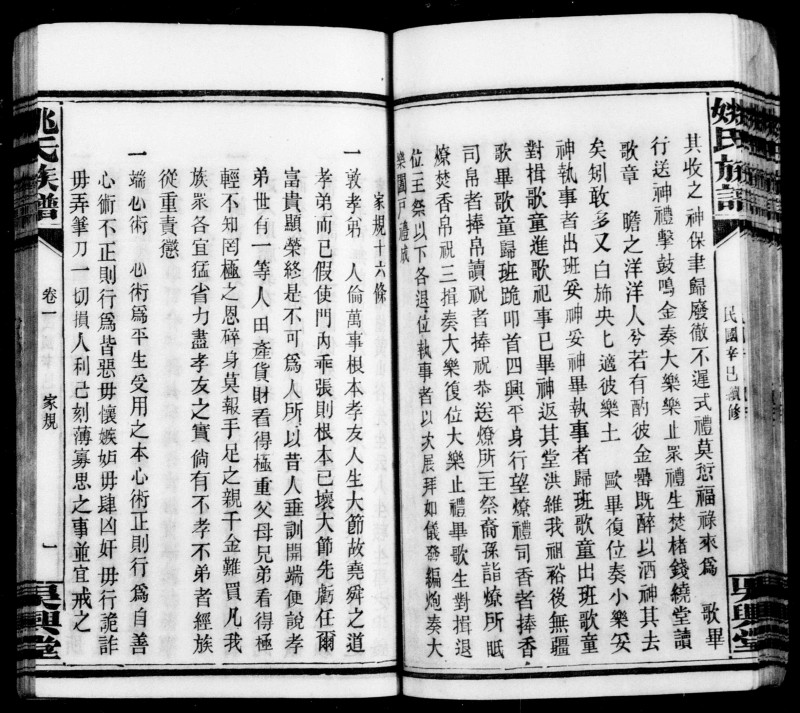 姚氏族譜
民國辛巳續修
吳興堂
其收之神保聿歸廢徹不遲式禮莫愆福祿來爲 歌畢
行送神禮擊鼓鳴金奏大樂樂止衆禮生焚楮錢繞堂讀
歌章 瞻之洋洋人兮若有酌彼金罍既醉以洒神其去
矣矧敢多又白斾央匕適彼樂土 歐畢復位奏小樂妥
神執事者出班妥神妥神畢執事者歸班歌童出班歌童
對揖歌童進歌祀事已畢神返其堂洪維我祖裕後無疆
歌畢歌童歸班跪叩首四興平身行望燎禮司香者捧香
司帛者捧帛讀祝者捧祝恭送燎所主祭裔孫詣燎所眂
燎焚香帛祝三揖奏大樂復位大樂止禮畢歌生對揖退
位主祭以下各退位執事者以次展拜如儀發編炮奏大
樂闔戶禮成
家規十六條
一敦孝弟 人倫萬事根本孝友人生大節故堯舜之道
孝弟而已假使門內乖張則根本已壞大節先虧任爾
富貴顯榮終是不可爲人所以昔人垂訓開端便說孝
弟世有一等人田產貨財看得極重父母兄弟看得極
輕不知罔極之恩碎身莫報手足之親千金難買凡我
族眾各宜猛省力盡孝友之實倘有不孝不弟者經族
從重責懲
一端心術 心術爲平生受用之本心術正則行爲自善
心術不正則行爲皆惡毋懷嫉妒毋肆凶奸毋行詭詐
毋弄筆刀一切損人利己刻薄寡思之事並宜戒之
姚氏族譜
卷一 家規 一
吳興堂